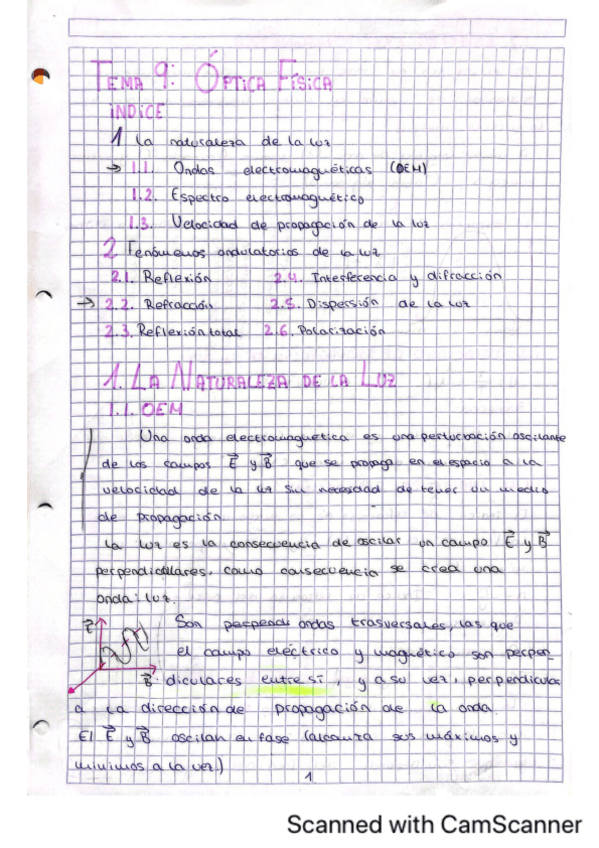 TEMA 9: ÓPTICA FÍSICA
ÍNDICE
1 La naturaleza de la luz
→ 1.1. Ondas electromagnéticas (OEM)
1.2. Espectro electromagnético
1.3. Velocidad de propagación de la luz
2 Fenómenos ondulatorios de la luz
2.1. Reflexión 2.4. Interferencia y difracción
→ 2.2. Refracción 2.5. Dispersión de la luz
2.3. Reflexión total 2.6. Polarización
1. LA NATURALEZA DE LA LUZ
1.1. OEM
Una onda electromagnética es una perturbación oscilante
de los campos E⃗ y B⃗ que se propaga en el espacio a la
velocidad de la luz sin necesidad de tener un medio
de propagación.
La luz es la consecuencia de oscilar un campo E⃗ y B⃗
perpendiculares, como consecuencia se crea una
onda: luz.
E⃗ Son perpendi ondas trasversales, las que
el campo eléctrico y magnético son perpen
B⃗ diculares entre sí, y a su vez, perpendicular
a la dirección de propagación de la onda.
El E⃗ y B⃗ oscilan en fase (alcanza sus máximos y
mínimos a la vez.)
1
Scanned with CamScanner